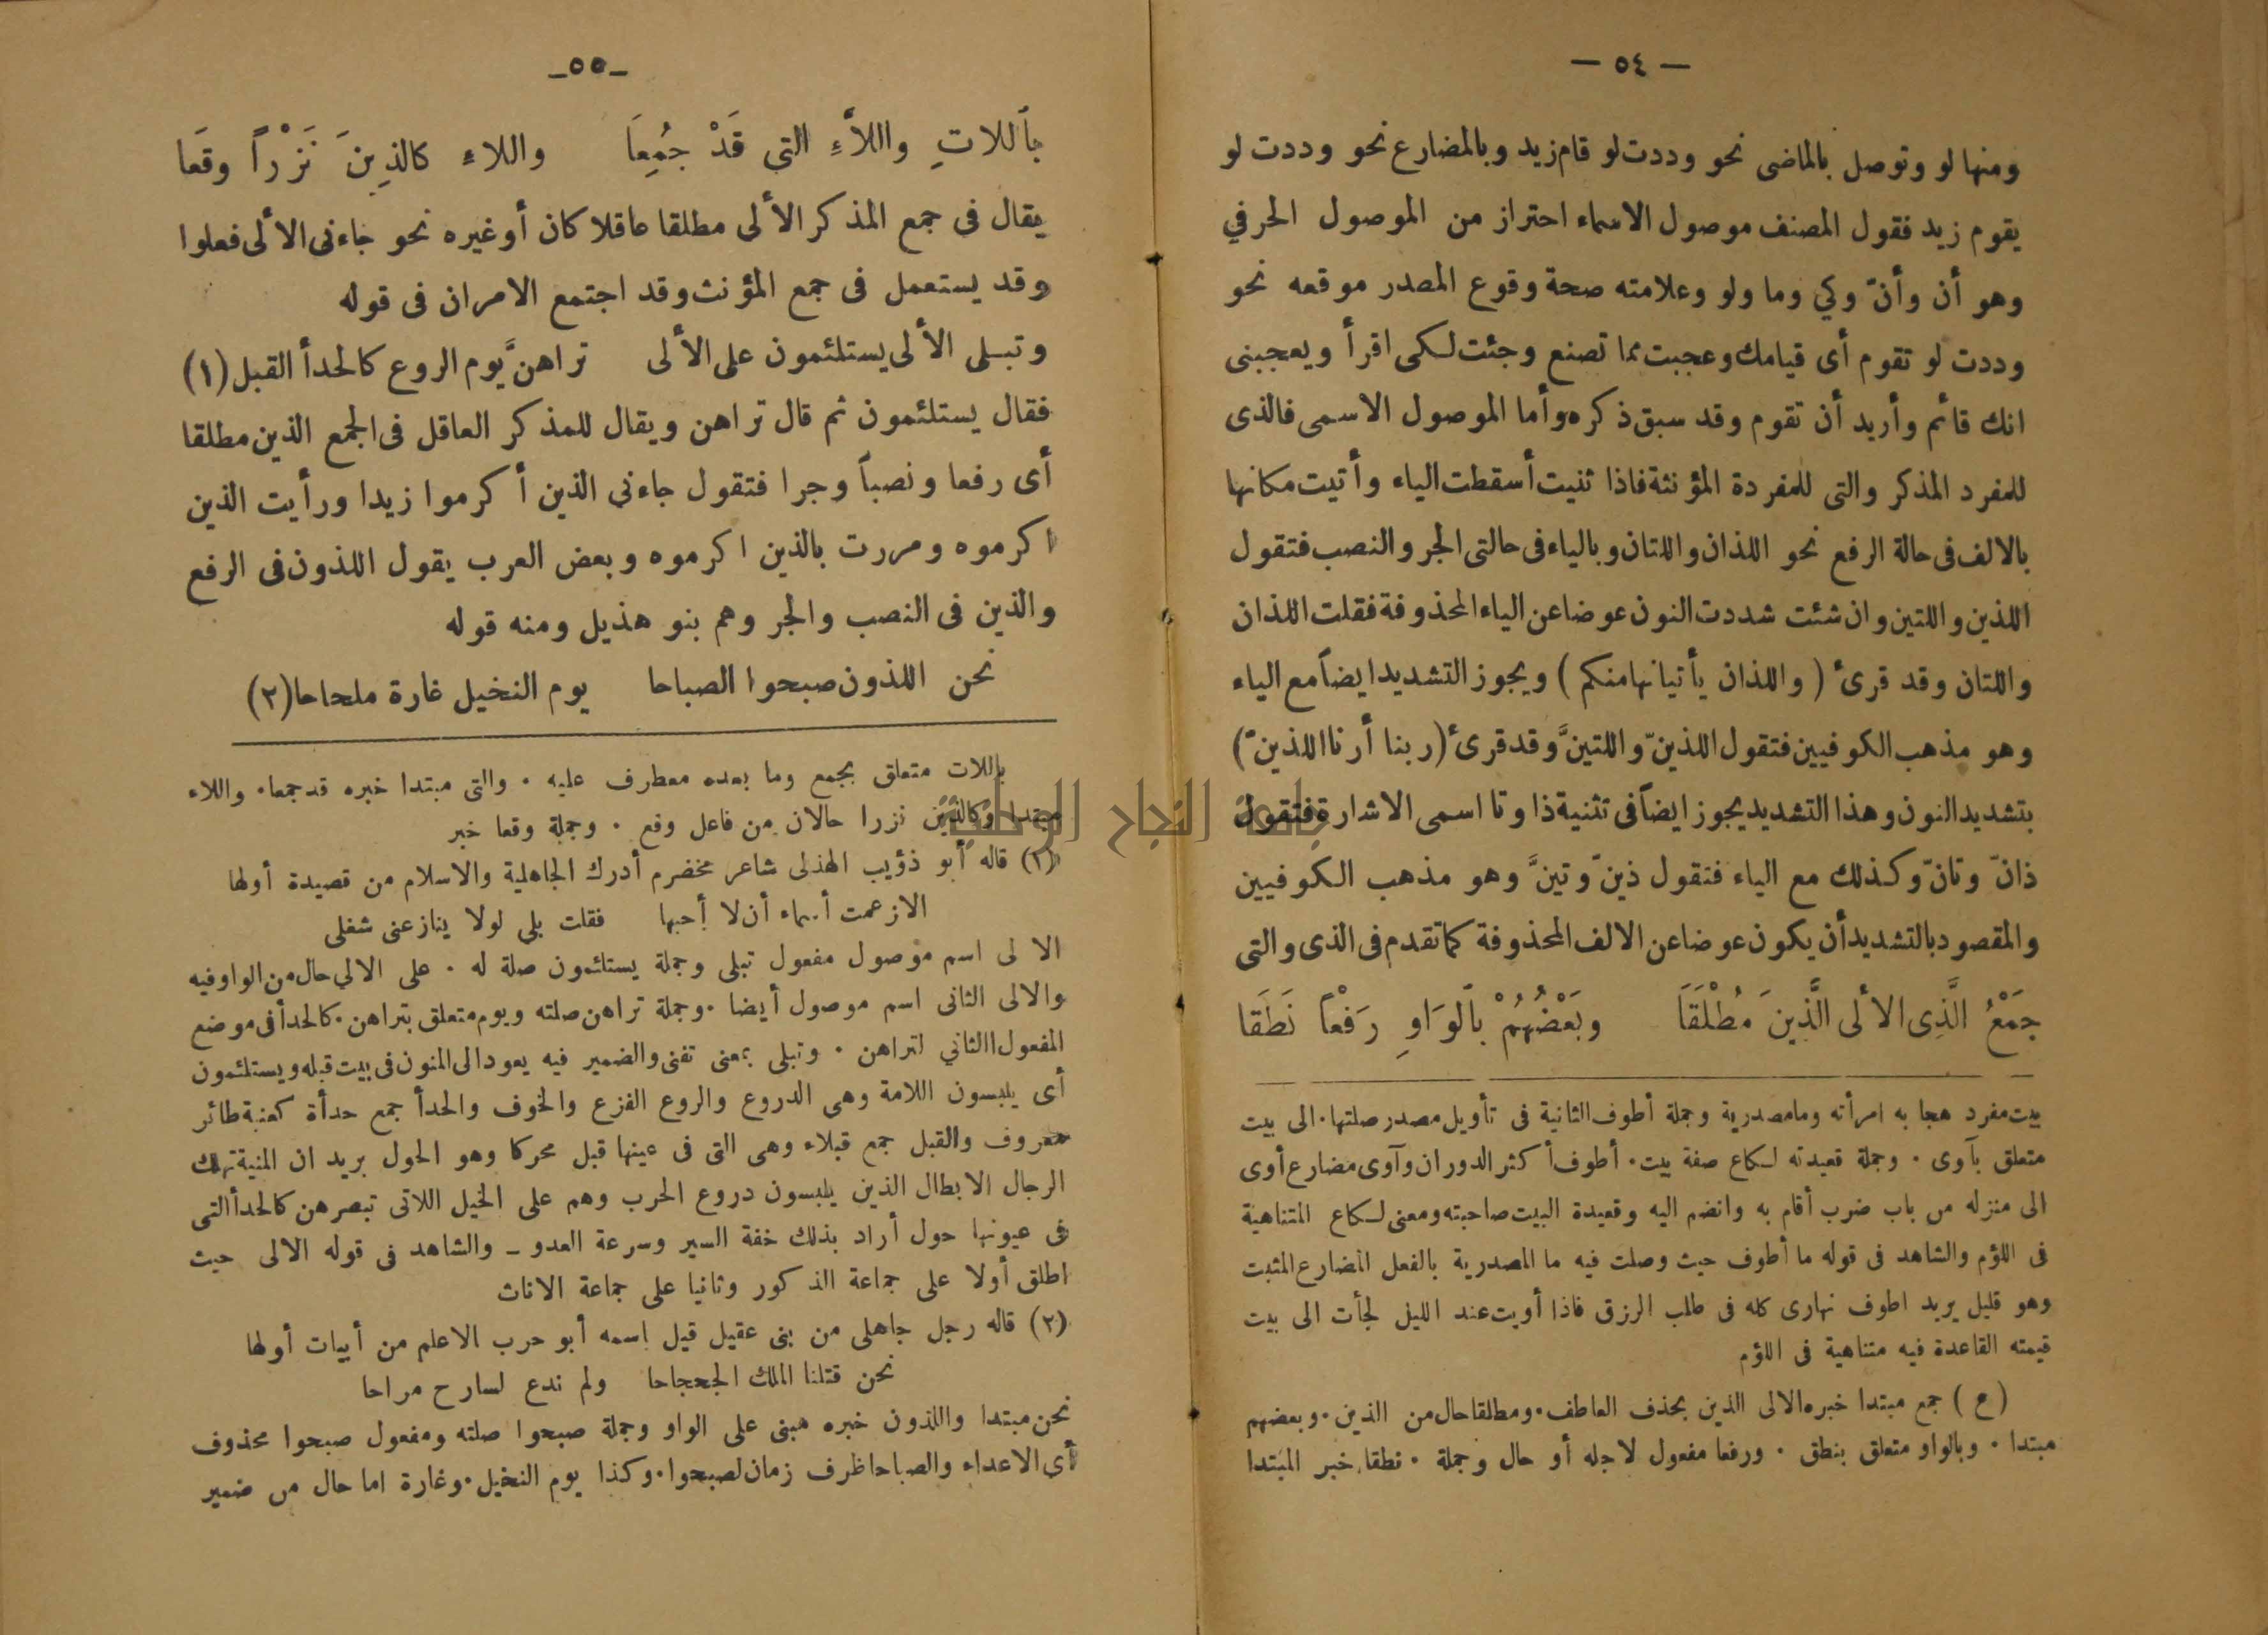 — ٥٤ —
ومنها لو وتوصل بالماضى نحو وددت لو قام زيد وبالمضارع نحو وددت لو
يقوم زيد فقول المصنف موصول الاسماء احتراز من الموصول الحرفي
وهو أن وأنّ وكي وما ولو وعلامته صحة وقوع المصدر موقعه نحو
وددت لو تقوم أى قيامك وعجبت مما تصنع وجئت لكى اقرأ ويعجبنى
انك قائم وأريد أن تقوم وقد سبق ذكره وأما الموصول الاسمى فالذى
للمفرد المذكر والتى للمفردة المؤنثة فاذا ثنيت أسقطت الياء وأتيت مكانها
بالالف فى حالة الرفع نحو اللذان واللتان وبالياء فى حالتى الجر والنصب فتقول
اللذين واللتين وان شئت شددت النون عوضا عن الياء المحذوفة فقلت اللذان
واللتان وقد قرىء (واللذان يأتيانها منكم) ويجوز التشديد ايضاً مع الياء
وهو مذهب الكوفيين فتقول اللذينّ واللتينَّ وقد قرىء (ربنا أرنا اللذينّ)
بتشديد النون وهذا التشديد يجوز ايضاً فى تثنية ذا وتا اسمى الاشارة فتقول
ذانّ وتانّ وكذلك مع الياء فتقول ذينّ وتينَّ وهو مذهب الكوفيين
والمقصود بالتشديد أن يكون عوضا عن الالف المحذوفة كما تقدم فى الذى والتى
جَمْعُ الَّذِى الألى الَّذِينَ مُطْلَقَاً وبَعْضُهُمْ بآلوَاوِ رَفْعاً نَطَقا
بيت مفرد هجا به امرأته وما مصدرية وجملة أطوف الثانية فى تأويل مصدر صلتها. الى بيت
متعلق بآوى . وجملة قعيدته لكاع صفة بيت. أطوف أكثر الدوران وآوى مضارع أوى
الى منزله من باب ضرب أقام به وانضم اليه وقعيدة البيت صاحبته ومعنى لكاع المتناهية
فى اللؤم والشاهد فى قوله ما أطوف حيث وصلت فيه ما المصدرية بالفعل المضارع المثبت
وهو قليل يريد اطوف نهارى كله فى طلب الرزق فاذا أويت عند الليل لجأت الى بيت
قيمته القاعدة فيه متناهية فى اللؤم
(ع) جمع مبتدا خبره الالى الذين بحذف العاطف. ومطلقا حال من الذين. وبعضهم
مبتدا . وبالواو متعلق بنطق . ورفعا مفعول لاجله أو حال وجملة . نطقا خبر المبتدا
ـ٥٥ـ
بآللاتِ واللاَّءِ التى قَدْ جُمِعَا واللاءِ كالذِينَ نَزْراً وقَعَا
يقال فى جمع المذكر الألى مطلقا عاقلا كان أو غيره نحو جاءنى الألى فعلوا
وقد يستعمل فى جمع المؤنث وقد اجتمع الامران فى قوله
وتبلى الألى يستلئمون على الألى تراهنَّ يوم الروع كالحدأ القبل (١)
فقال يستلئمون ثم قال تراهن ويقال للمذكر العاقل فى الجمع الذين مطلقا
أى رفعا ونصباً وجرا فتقول جاءنى الذين أكرموا زيدا ورأيت الذين
اكرموه ومررت بالذين اكرموه وبعض العرب يقول اللذون فى الرفع
والذين فى النصب والجر وهم بنو هذيل ومنه قوله
نحن اللذون صبحوا الصباحا يوم النخيل غارة ملحاحا (٢)
باللات متعلق بجمع وما بعده معطوف عليه . والتى مبتدا خبره قد جمعا. واللاء
مبتدا وكالذين نزرا حالان من فاعل وقع . وجملة وقعا خبر
(١) قاله أبو ذؤيب الهذلى شاعر مخضرم أدرك الجاهلية والاسلام من قصيدة أولها
الا زعمت أسماء أن لا أحبها فقلت بلى لولا ينازعنى شغلى
الالى اسم موصول مفعول تبلى وجملة يستلئمون صلة له . على الالي حال من الواو فيه
والالى الثانى اسم موصول أيضا . وجملة تراهن صلته ويوم متعلق بتراهن. كالحدأ فى موضع
المفعول الثاني لتراهن . وتبلى بمعنى تفنى والضمير فيه يعود الى المنون فى بيت قبله ويستلئمون
أى يلبسون اللامة وهى الدروع والروع الفزع والخوف والحدأ جمع حدأة كعنبة طائر
معروف والقبل جمع قبلاء وهى التى فى عينها قبل محركا وهو الحول يريد ان المنية تهلك
الرجال الابطال الذين يلبسون دروع الحرب وهم على الخيل اللاتى تبصرهن كالحدأ التى
فى عيونها حول أراد بذلك خفة السير وسرعة العدو ـ والشاهد فى قوله الالى حيث
اطلق أولا على جماعة الذكور وثانيا على جماعة الاناث
(٢) قاله رجل جاهلى من بنى عقيل قيل اسمه أبو حرب الاعلم من أبيات أولها
نحن قتلنا الملك الجحجاحا ولم ندع لسارح مراحا
نحن مبتدا واللذون خبره مبنى على الواو وجملة صبحوا صلته ومفعول صبحوا محذوف
أي الاعداء والصباحا ظرف زمان لصبحوا. وكذا يوم النخيل. وغارة اما حال من ضمير
جامعة النجاح الوطنية